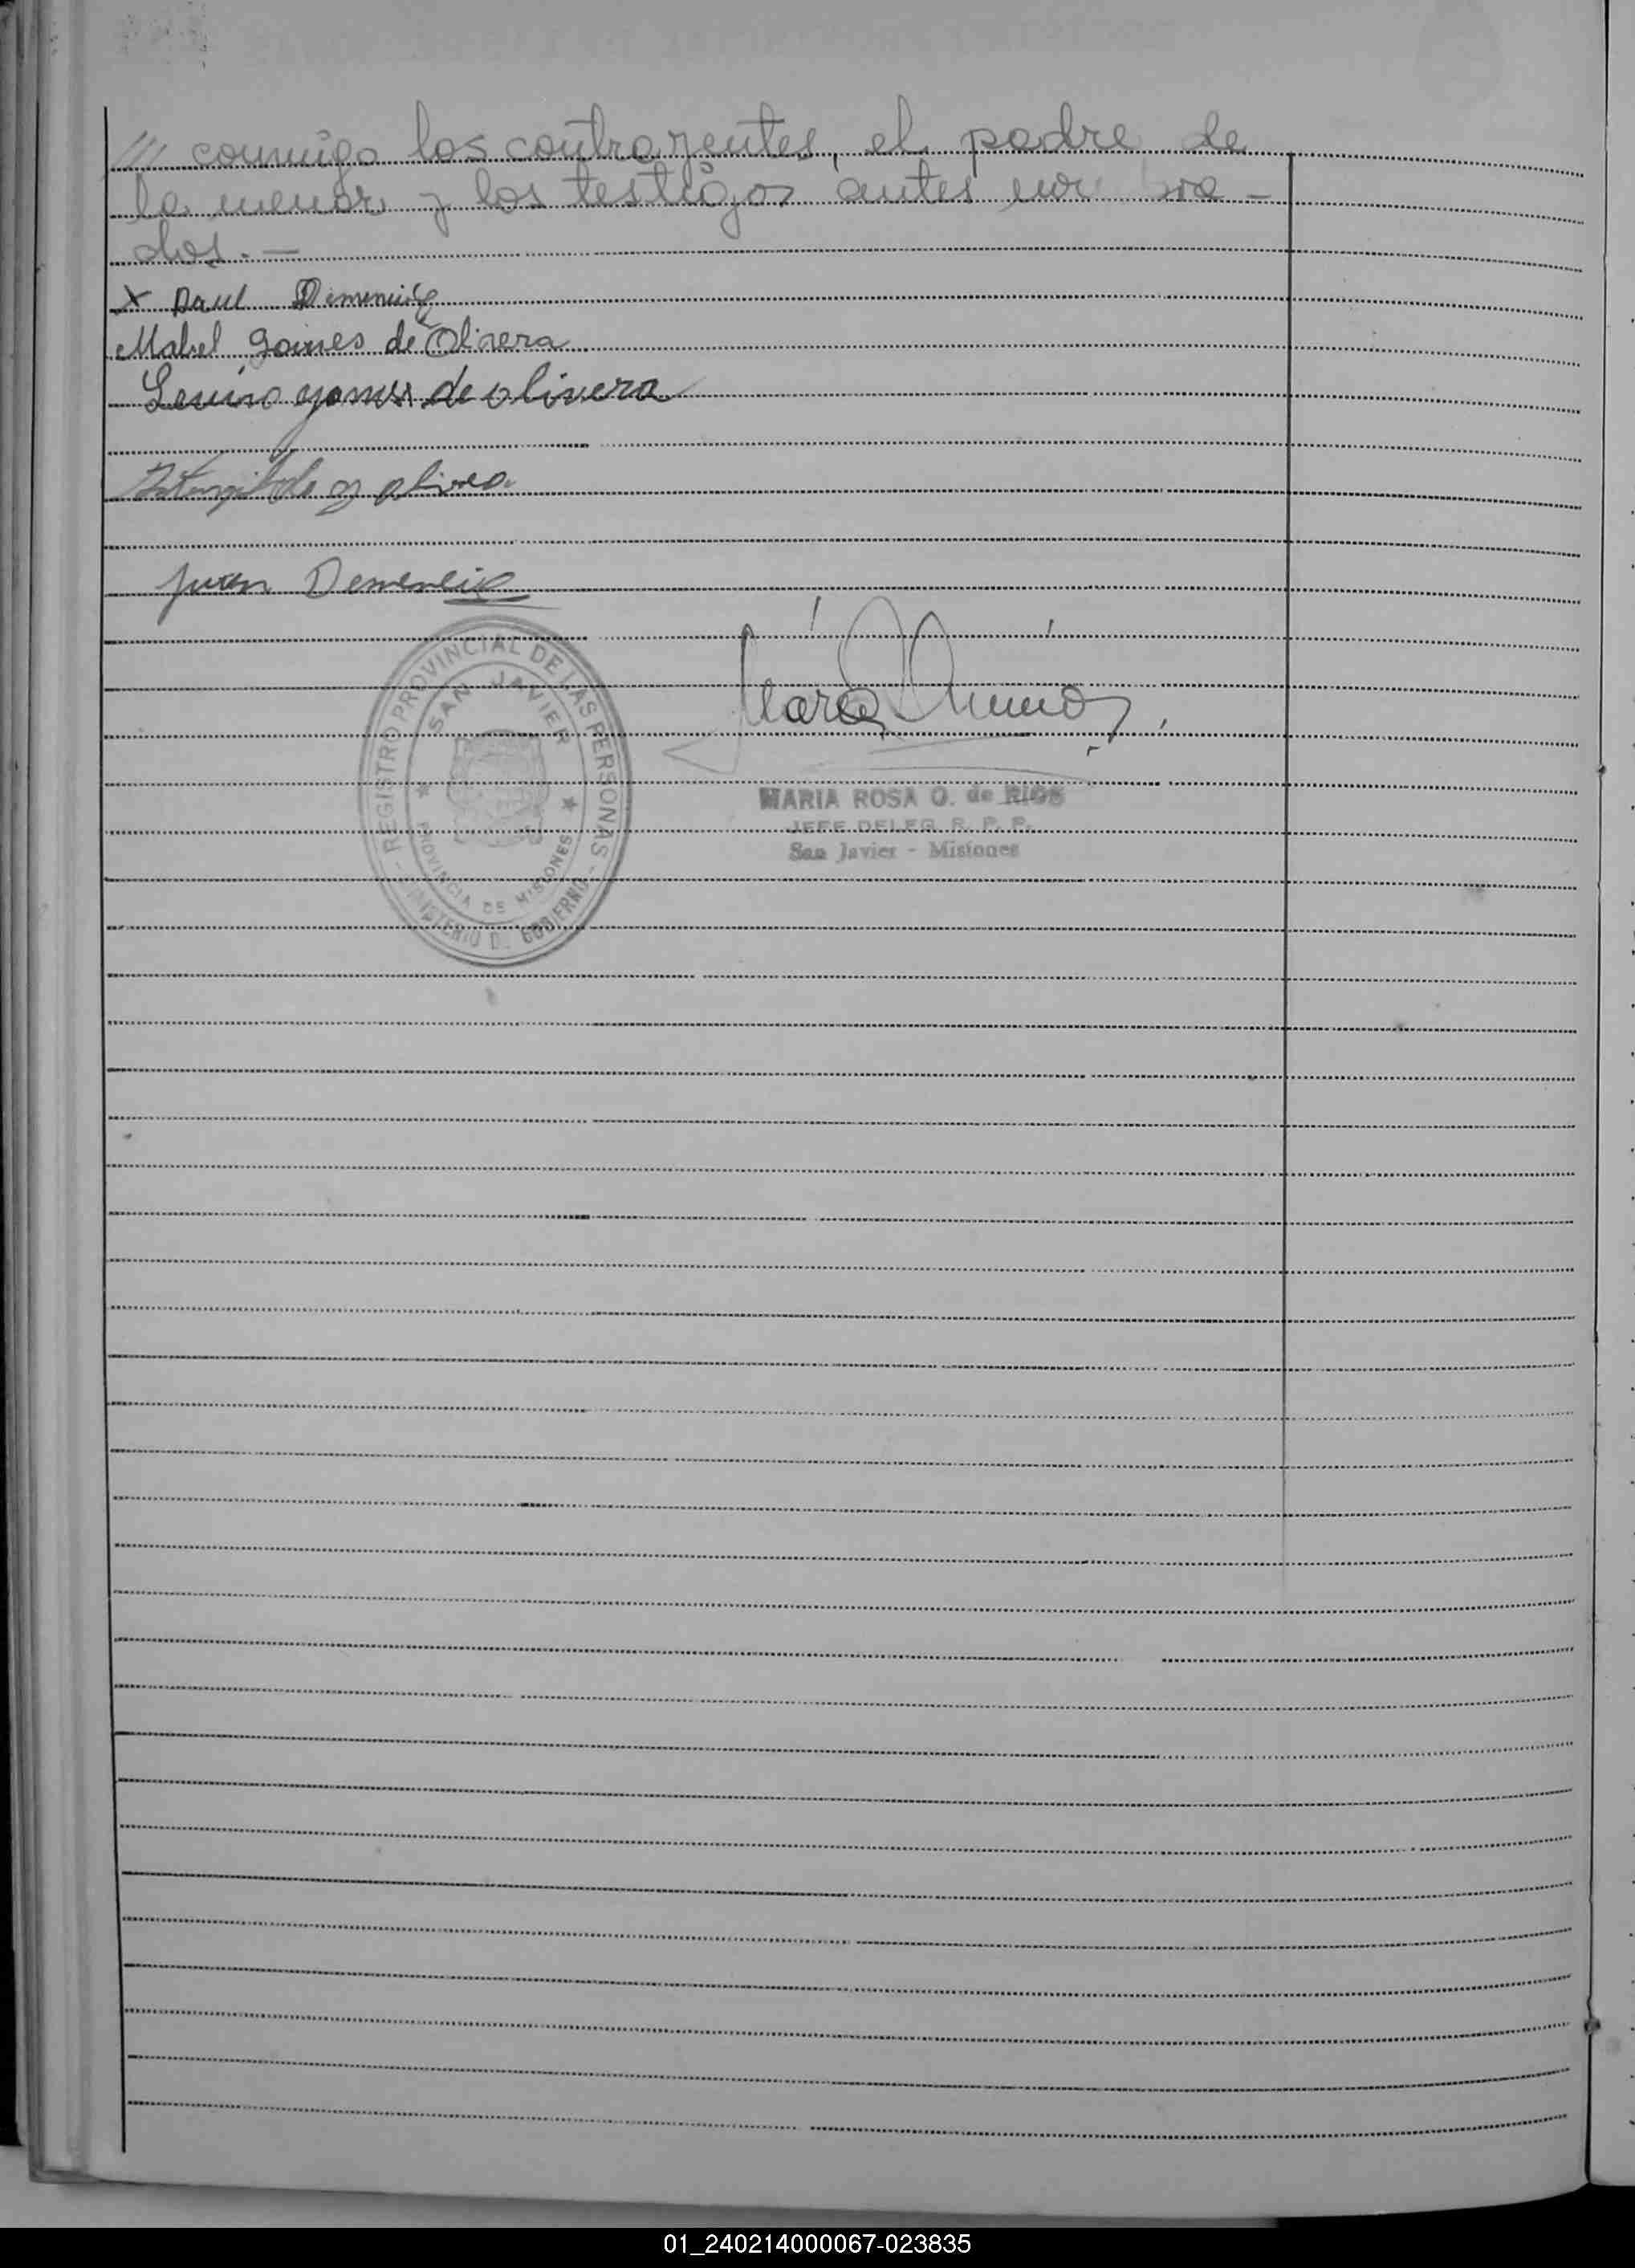 /// conmigo los contrayentes, el padre de
la menor y los testigos antes nombra-
dos.-
X Raul Demeniuk
Mabel Gomes de Olivera
gomes de olivera
olivera
Juan Demeniuk
REGISTRO PROVINCIAL DE LAS PERSONAS -
SAN JAVIER
PROVINCIA DE MISIONES
MINISTERIO DE GOBIERNO
MARIA ROSA O. de RIOS
JEFE DELEG. R. P. P.
San Javier - Misiones
01_240214000067-023835